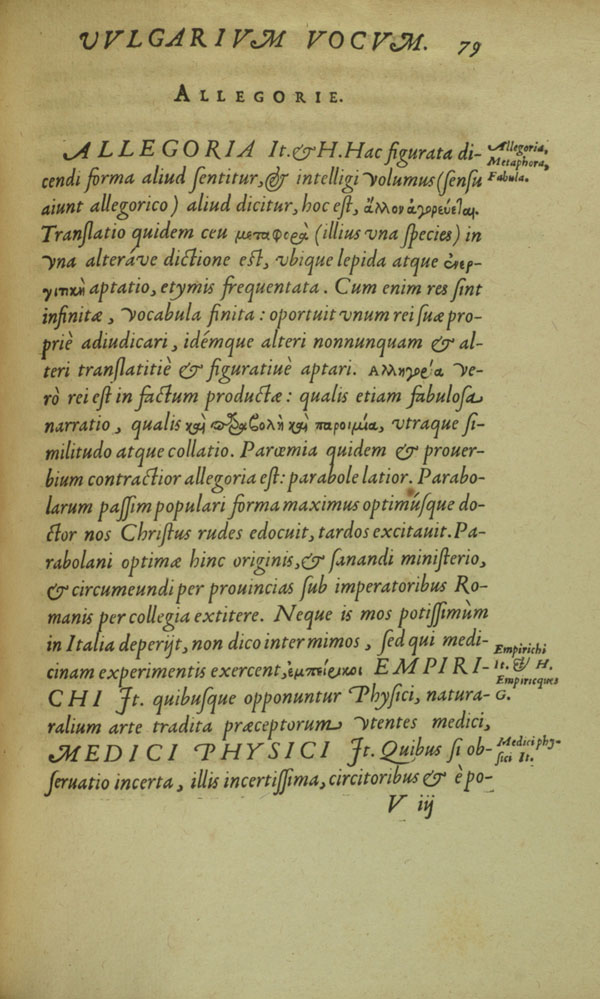 VVLGARIVM VOCVM. 79
ALLEGORIE.
ALLEGORIA It. & H. Hac figurata di-
cendi forma aliud sentitur, & intelligi volumus (sensu
aiunt allegorico) aliud dicitur, hoc est, ἄλλον ἀγορεύεται.
Translatio quidem ceu μεταφορὰ (illius vna species) in
vna alteráve dictione est, vbique lepida atque ἐνερ-
γιτικὴ aptatio, etymis frequentata. Cum enim res sint
infinitæ, vocabula finita: oportuit vnum rei suæ pro-
priè adiudicari, idémque alteri nonnunquam & al-
teri translatitiè & figuratiuè aptari. Αλληγορία ve-
rò rei est in factum productæ: qualis etiam fabulosa
narratio, qualis καὶ παραβολὴ καὶ παροιμία, vtraque si-
militudo atque collatio. Parœmia quidem & prouer-
bium contractior allegoria est: parabole latior. Parabo-
larum passim populari forma maximus optimúsque do-
ctor nos Christus rudes edocuit, tardos excitauit. Pa-
rabolani optimæ hinc originis, & sanandi ministerio,
& circumeundi per prouincias sub imperatoribus Ro-
manis per collegia extitere. Neque is mos potissimùm
in Italia deperijt, non dico inter mimos, sed qui medi-
cinam experimentis exercent, ἐμπείρικοι EMPIRI-
CHI It. quibusque opponuntur Physici, natura-
ralium arte tradita præceptorum vtentes medici,
MEDICI PHYSICI It. Quibus si ob-
seruatio incerta, illis incertissima, circitoribus & è po-
V iij
Allegoria,
Metaphora,
Fabula.
Empirichi
It. & H.
Empiricques
G.
Medici phy-
sici It.